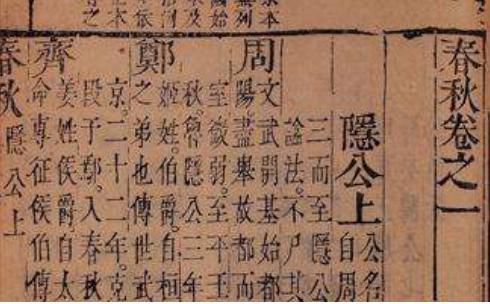 春秋卷之一
隱公上
公名
自周
三而至隱公
諡法。不尸其
周
文武開基始都
陽盡舉故都而
室微弱。至平王
秋。魯隱公三年
鄭
姬姓。伯爵。自桓
之弟也傳世武
京。二十二年。克
段于鄢。入春秋
齊
姜姓。侯爵。自太
命專征侯伯傳
春秋 隱公上